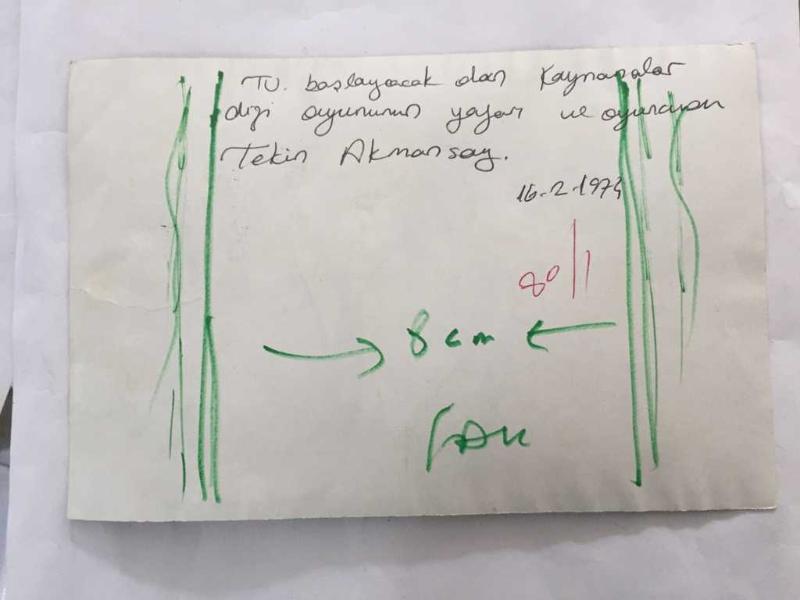 TV. başlayacak olan Kaynanalar
dizi oyununun yazarı ve oyuncusu
Tekin Akmansoy.
16-2-1974
80/1
8 cm